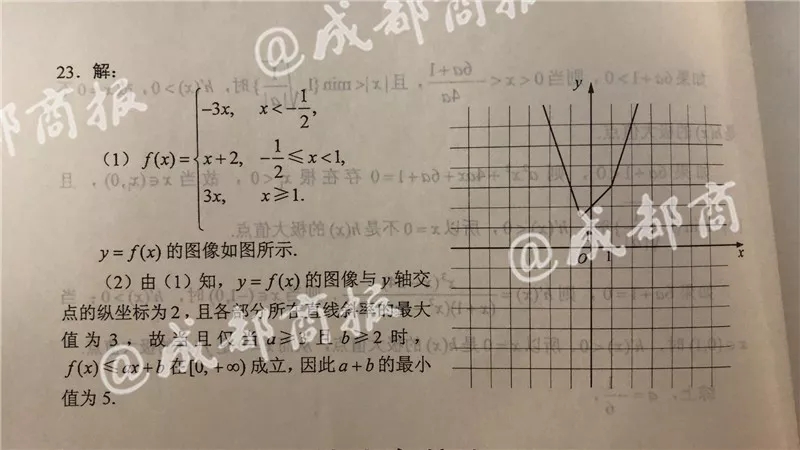 @成都商报
都商报
23. 解:
-3x, x<-1/2,
(1) f(x)= x+2, -1/2≤x<1,
3x, x≥1.
y
O 1 x
@成都商
y=f(x)的图像如图所示.
(2)由(1)知,y=f(x)的图像与y轴交
点的纵坐标为2,且各部分所在直线斜率的最大
值为3,故当且仅当a≥3且b≥2时,
f(x)≤ax+b在[0,+∞)成立,因此a+b的最小
值为5.
@成都商报